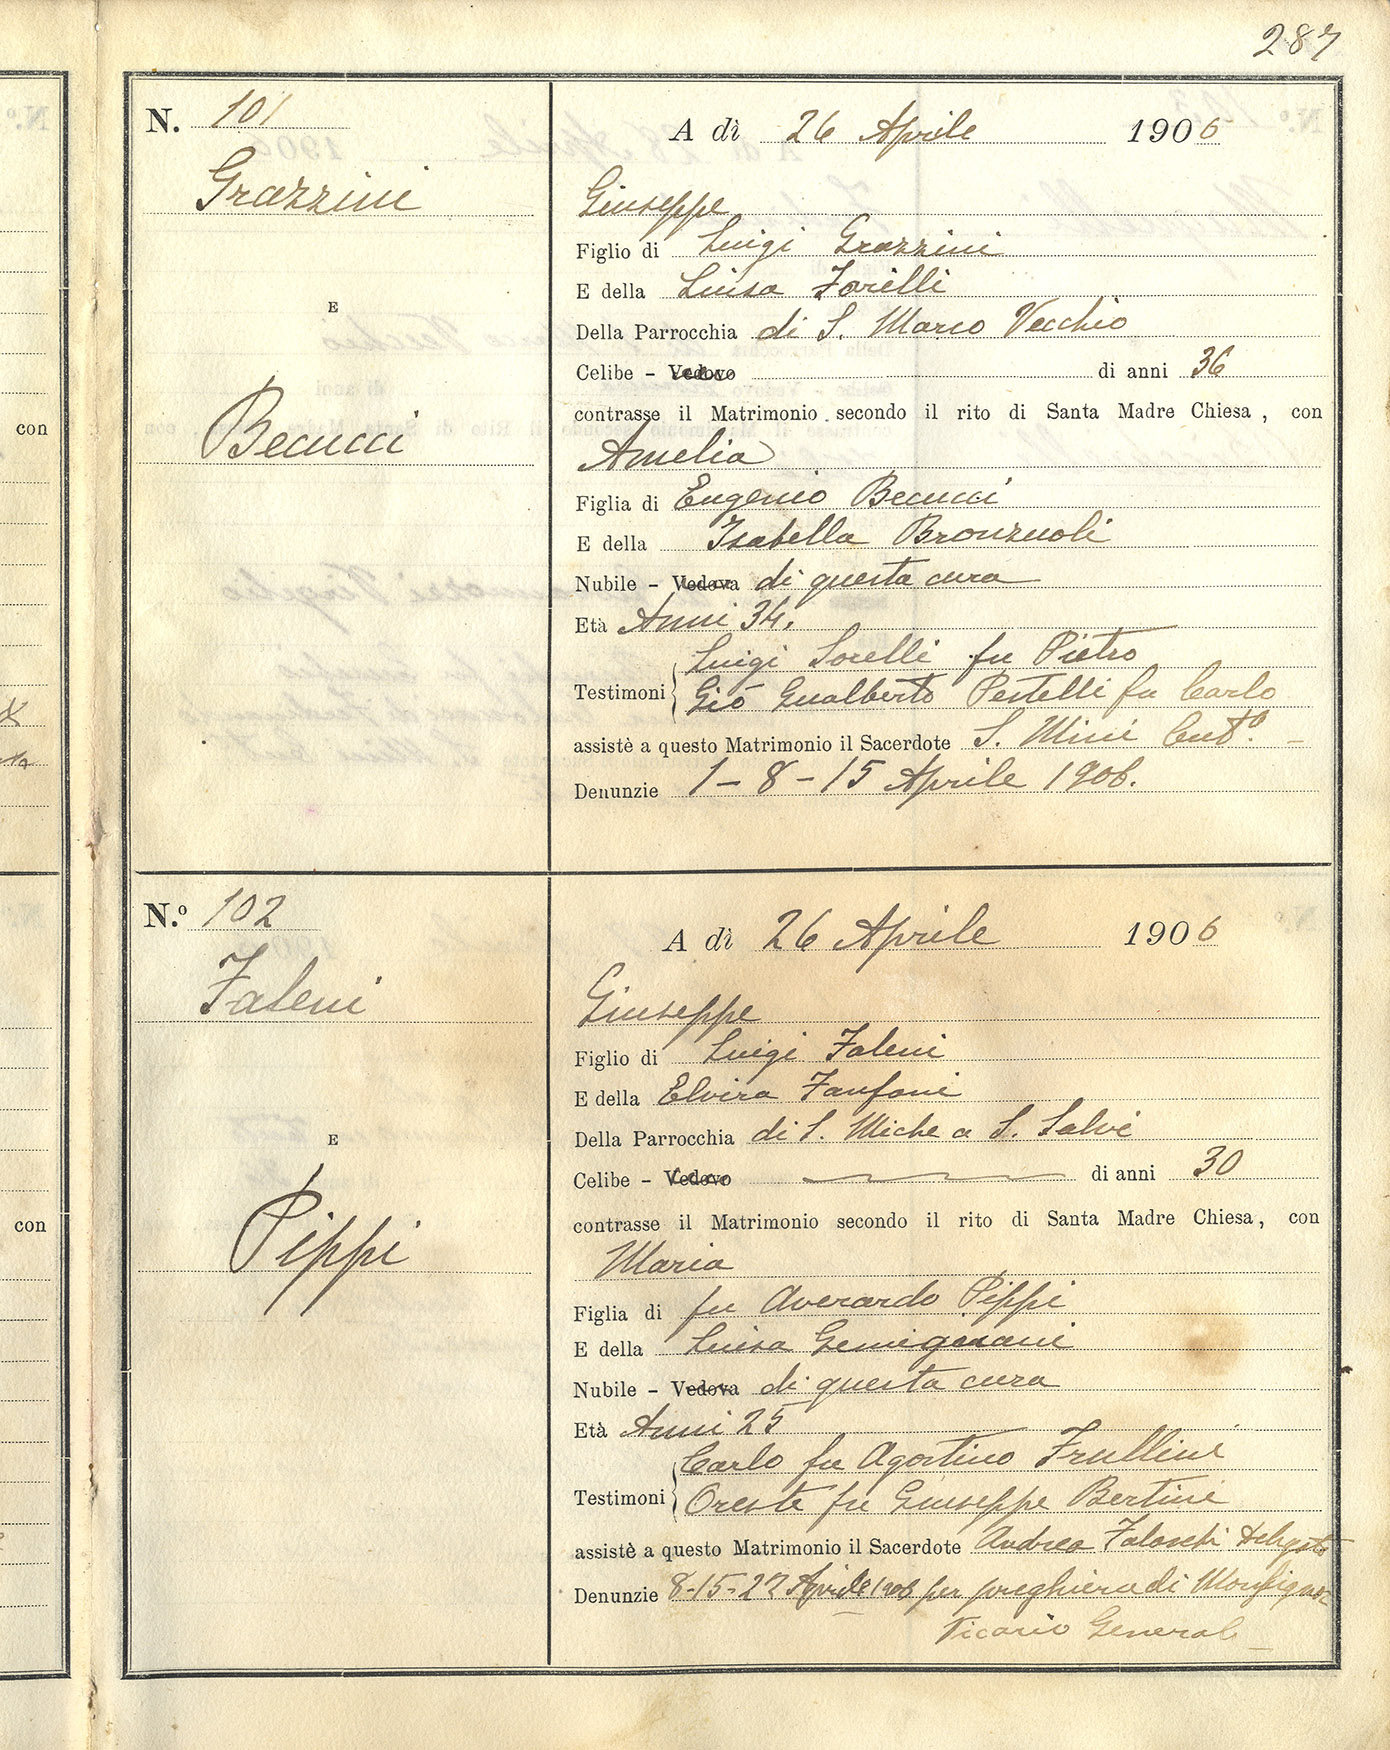 287
N. 101
Grazzini
E
Becucci
A dì 26 Aprile 1906
Giuseppe
Figlio di Luigi Grazzini
E della Luisa
Della Parrocchia di S. Marco Vecchio
Celibe - Vedovo di anni 36
contrasse il Matrimonio secondo il rito di Santa Madre Chiesa, con
Amelia
Figlia di Eugenio Becucci
E della Isabella Bronzuoli
Nubile - Vedova di questa cura
Età Anni 34.
Testimoni
Luigi Sorelli fu Pietro
Gio Gualberto Pestelli fu Carlo
assistè a questo Matrimonio il Sacerdote S. Mini Curto.
Denunzie 1 - 8 - 15 Aprile 1906.
N.º 102
Faleni
E
Pippi
A dì 26 Aprile 1906
Giuseppe
Figlio di Luigi Faleni
E della Elvira Fanfani
Della Parrocchia di S. Miche a S. Salvi
Celibe - Vedovo di anni 30
contrasse il Matrimonio secondo il rito di Santa Madre Chiesa, con
Maria
Figlia di fu Averardo Pippi
E della Luisa Gemignani
Nubile - Vedova di questa cura
Età Anni 25
Testimoni
Carlo fu Agostino Frullini
Oreste fu Giuseppe Bertini
assistè a questo Matrimonio il Sacerdote Andrea Delegato
Denunzie 8-15-22 Aprile 1906 per preghiera di Monsignor
Vicario General
con
con